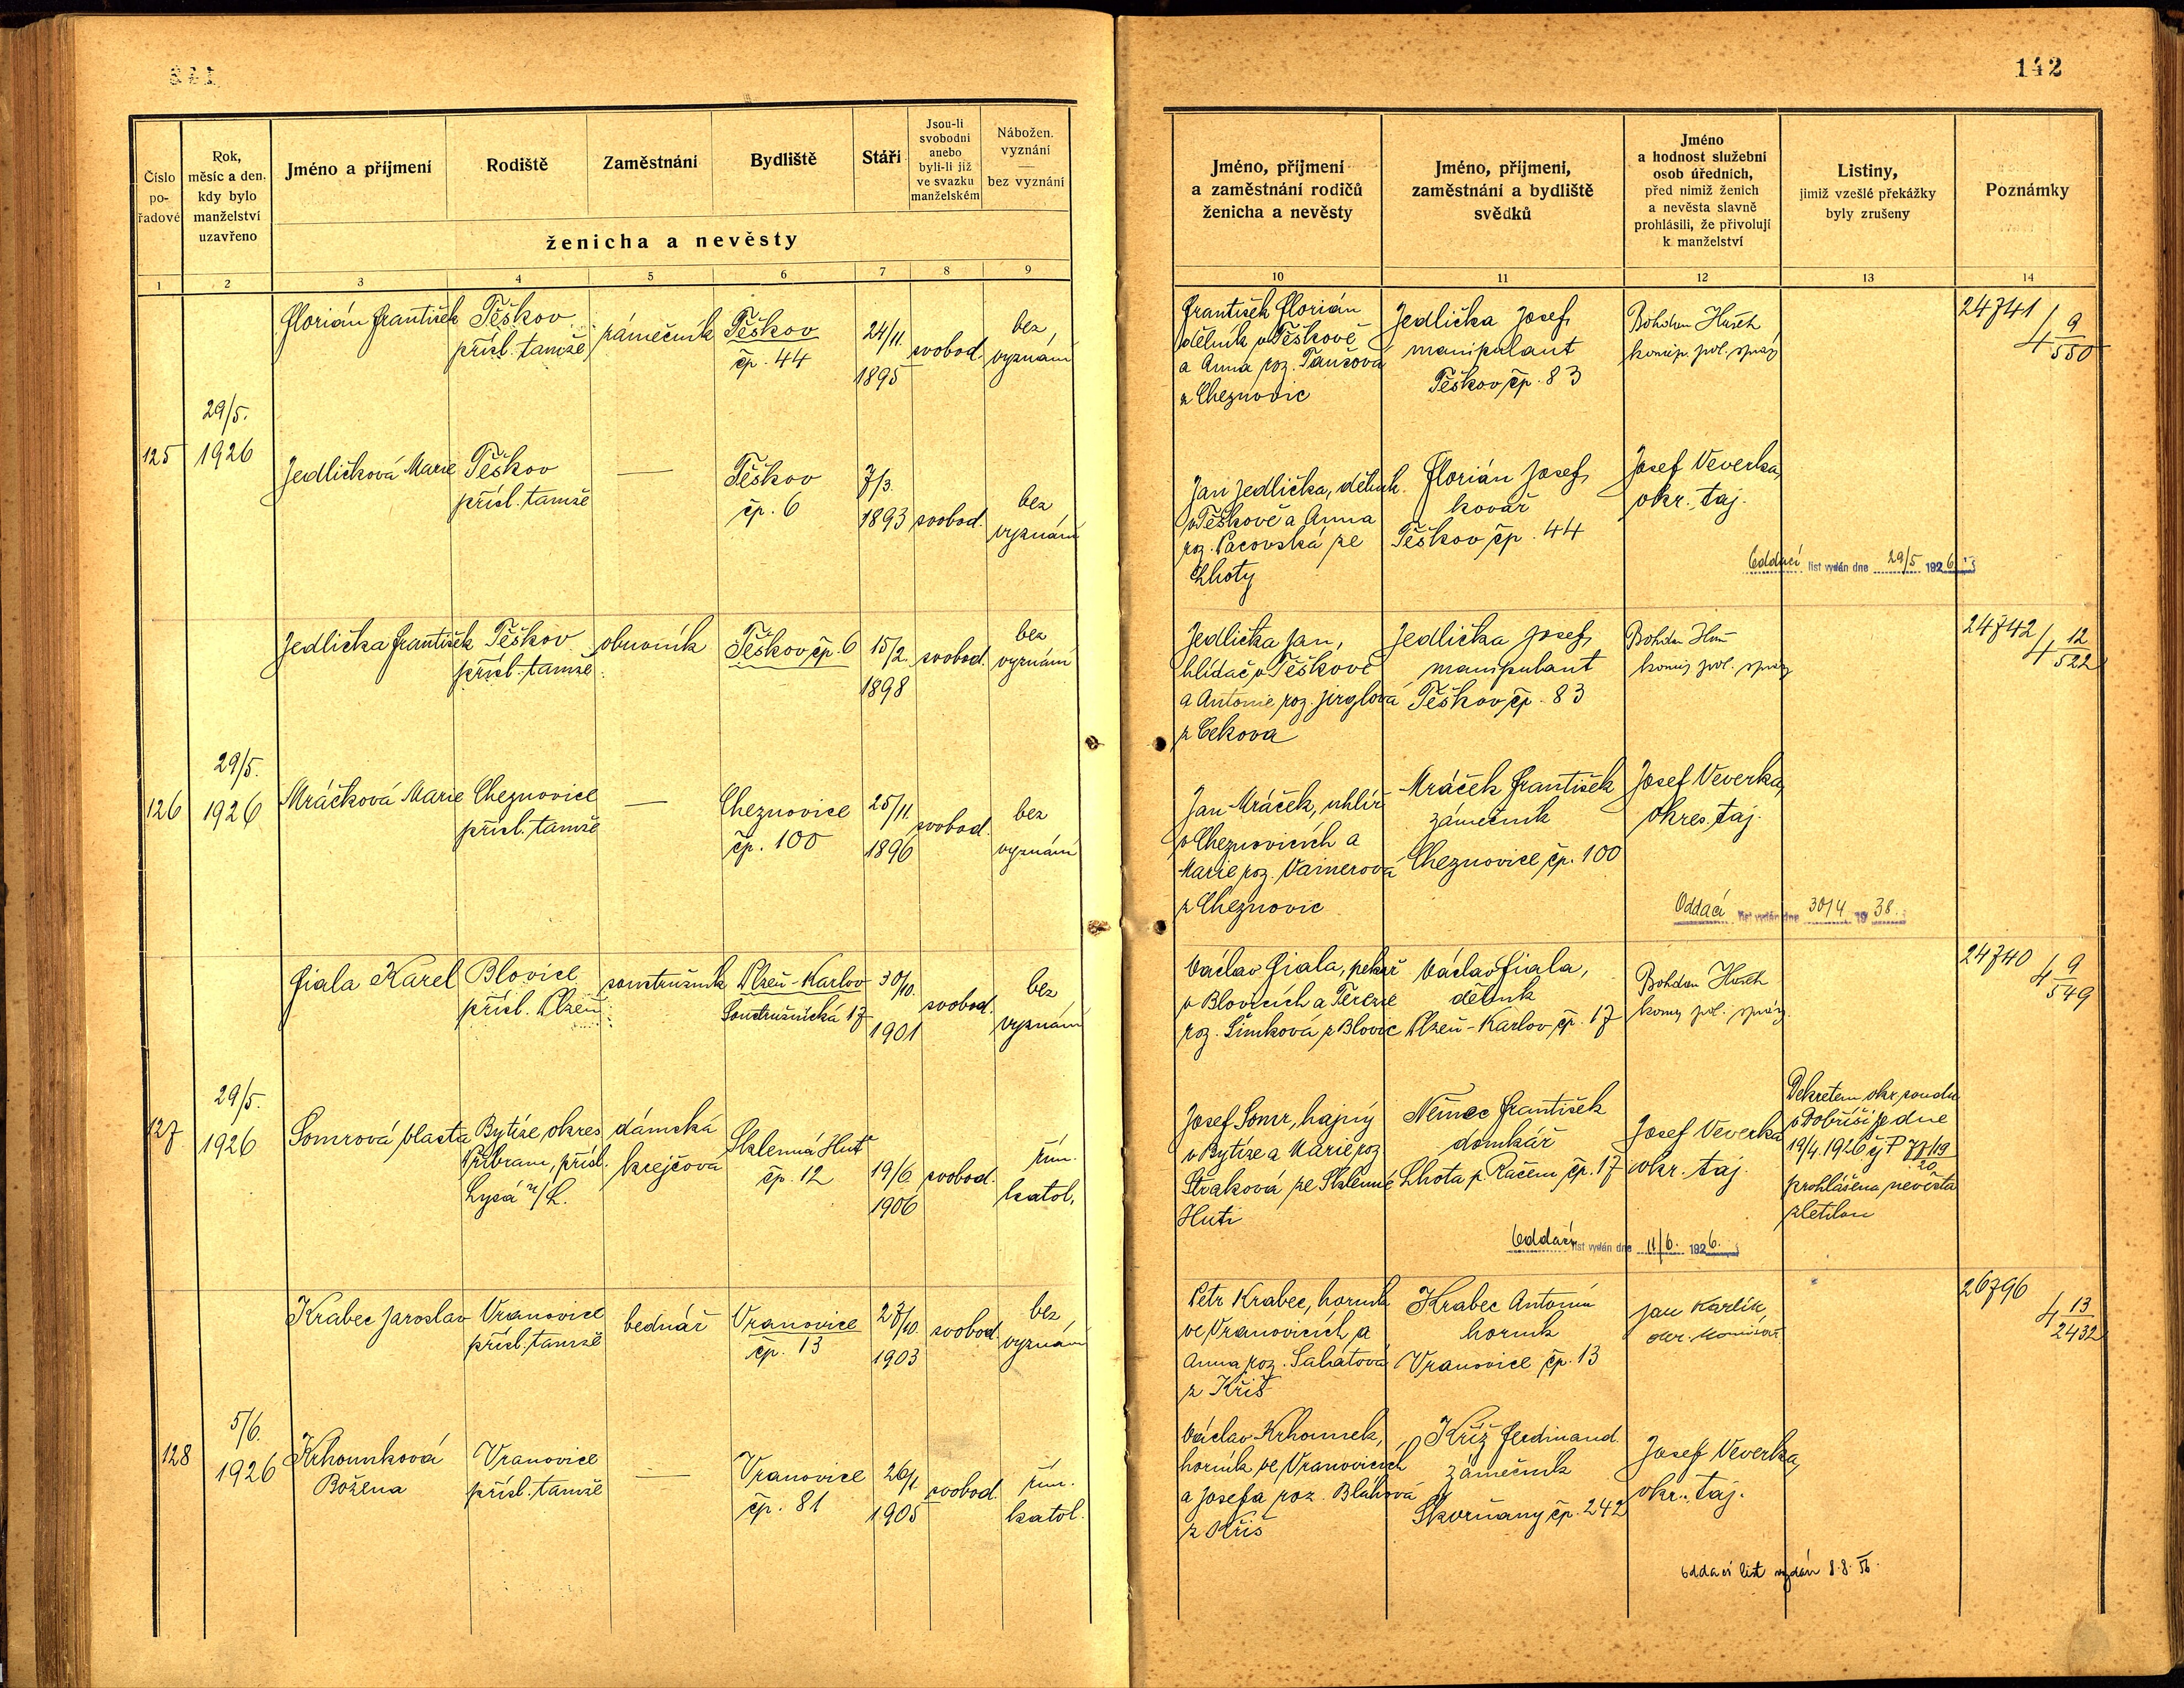 142
Číslo pořadové
Rok, měsíc a den, kdy bylo manželství uzavřeno
Jméno a příjmení
Rodiště
Zaměstnání
Bydliště
Stáří
Jsou-li svobodni anebo byli-li již ve svazku manželském
Nábožen. vyznání
bez vyznání
ženicha a nevěsty
Jméno, příjmení a zaměstnání rodičů ženicha a nevěsty
Jméno, příjmení, zaměstnání a bydliště svědků
Jméno a hodnost služební osob úředních, před nimiž ženich a nevěsta slavně prohlásili, že přivolují k manželství
Listiny, jimiž vzešlé překážky byly zrušeny
Poznámky
1 2 3 4 5 6 7 8 9 10 11 12 13 14
125
29/5.
1926
Florián František
Těškov
přísl. tamže
zámečník
Těškov
čp. 44
24/11.
1895
svobod.
bez
vyznání
František Florián
dělník v Těškově
a Anna roz.
z Cheznovic
Jedlička Josef,
manipulant
Těškov čp. 83
Bohdan
24741
4 9/550
Jedličková Marie
Těškov
přísl. tamže
—
Těškov
čp. 6
7/3.
1893
svobod.
bez
vyznání
Jan Jedlička, dělník
v Těškově a Anna
roz. Pacovská ze
Lhoty
Florián Josef,
kovář
Těškov čp. 44
Josef Veverka,
okr. taj.
Oddací list vydán dne 29/5 1926
126
29/5.
1926
Jedlička František
Těškov
přísl. tamže
obuvník
Těškov čp. 6
15/2.
1898
svobod.
bez
vyznání
Jedlička Jan,
hlídač v Těškově
a Antonie roz. Jirglová
z Cekova
Jedlička Josef,
manipulant
Těškov čp. 83
Bohdan
24742
4 12/522
Mráčková Marie
Cheznovice
přísl. tamže
—
Cheznovice
čp. 100
25/11.
1896
svobod.
bez
vyznání
Jan Mráček, uhlíř
v Cheznovicích a
Marie roz. Vainerová
z Cheznovic
Mráček František
zámečník
Cheznovice čp. 100
Josef Veverka,
okres. taj.
Oddací list vydán dne 30/4 1938.
127
29/5.
1926
Fiala Karel
Blovice
přísl. Plzeň
soustružník
Plzeň-Karlov
Soustružnická 17
30/10.
1901
svobod.
bez
vyznání
Václav Fiala, pekař
v Blovicích a Terezie
roz. Šimková z Blovic
Václav Fiala,
dělník
Plzeň-Karlov čp. 17
Bohdan
24740
4 9/549
Somrová Vlasta
Bytíze, okres
Příbram, přísl.
Lysá n/L.
dámská
krejčová
Sklenná Huť
čp. 12
19/6.
1906
svobod.
řím.
katol.
Josef Somr, hajný
v Bytíze a Marie roz.
Straková ze Sklenné
Huti
Němec František
domkář
Lhota p. Račem čp. 17
Josef Veverka
okr. taj.
Dekretem okr. soudu
v Dobříši ze dne
19/4. 1926 čj. P
prohlášena nevěsta
zletilou
Oddací list vydán dne 11/6. 1926.
128
5/6.
1926
Krabec Jaroslav
Vranovice
přísl. tamže
bednář
Vranovice
čp. 13
27/10.
1903
svobod.
bez
vyznání
Petr Krabec, horník
ve Vranovicích a
Anna roz.
z Kříš
Krabec Antonín
horník
Vranovice čp. 13
Jan Karlík
26796
4 13/2432
Krhounková
Božena
Vranovice
přísl. tamže
—
Vranovice
čp. 81
26/1.
1905
svobod.
řím.
katol.
Václav Krhounek,
horník ve Vranovicích
a Josefa roz. Bláhová
z Kříš
Kříž Ferdinand.
zámečník
Skvrňany čp. 242
Josef Veverka,
okr. taj.
Oddací list vydán 8.8.